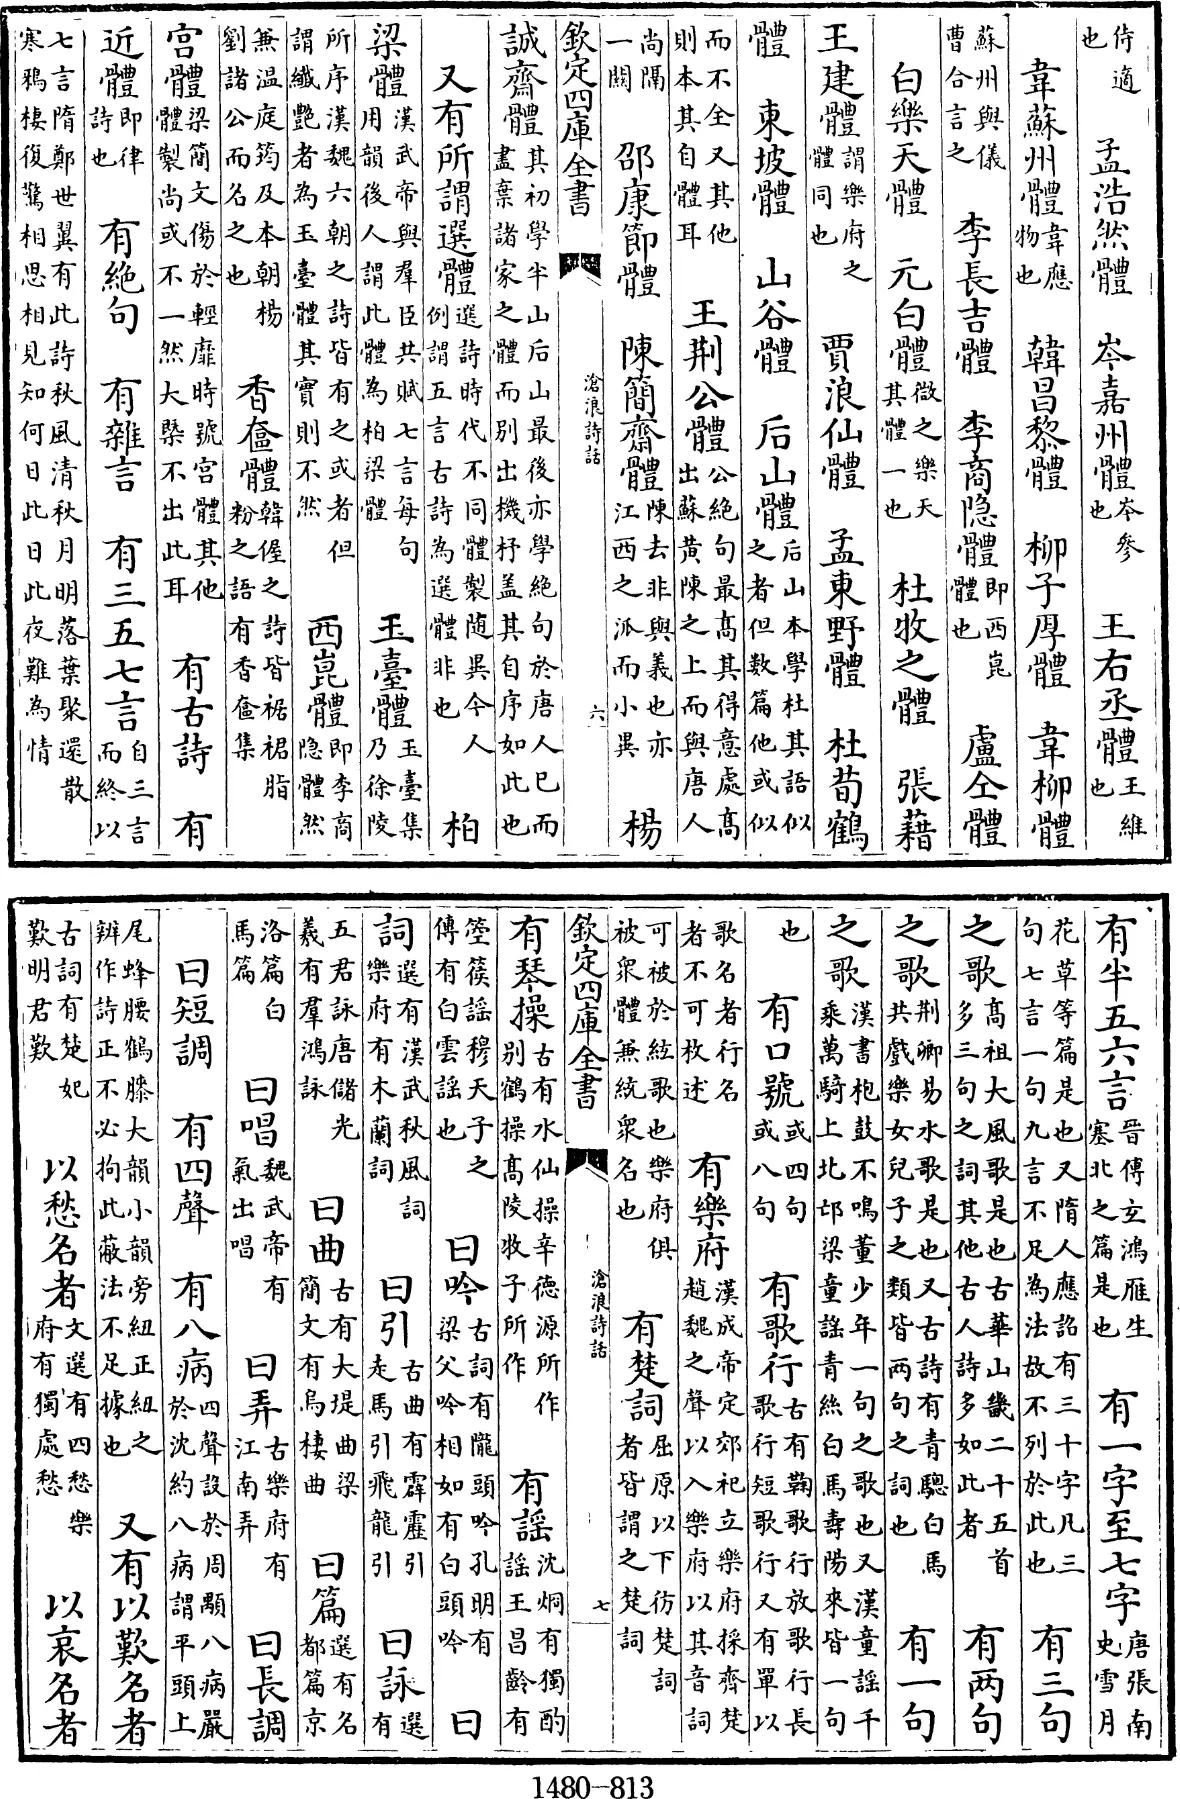 侍適也　孟浩然體　岑嘉州體岑參也　王右丞體王維也
韋蘇州體韋應物也　韓昌黎體　柳子厚體　韋柳體
蘇州與儀曹合言之　李長吉體　李商隐體即西崑體也　盧仝體
白樂天體　元白體微之樂天其體一也　杜牧之體　張藉
王建體謂樂府之體同也　賈浪仙體　孟東野體　杜荀鶴
體　東坡體　山谷體　后山體后山本學杜其語似之者但数篇他或似
而不全又其他則本其自體耳　王荆公體公絶句最高其得意處高出蘇黄陳之上而與唐人
尚隔一關　邵康節體　陳簡齋體陳去非與義也亦江西之派而小異　楊
欽定四庫全書　滄浪詩話　六
誠齋體其初學半山后山最後亦學絶句於唐人已而盡棄諸家之體而别出機杼盖其自序如此也
又有所謂選體選詩時代不同體製随異今人例謂五言古詩為選體非也　柏
梁體漢武帝與羣臣共賦七言每句用韻後人謂此體為柏梁體　玉臺體玉臺集乃徐陵
所序漢魏六朝之詩皆有之或者但謂纖艷者為玉臺體其實則不然　西崑體即李商隐體然
兼温庭筠及本朝楊劉諸公而名之也　香奩體韓偓之詩皆裾裙脂粉之語有香奩集
宫體梁簡文傷於輕靡時號宫體其他體製尚或不一然大槩不出此耳　有古詩　有
近體即律詩也　有絶句　有雜言　有三五七言自三言而終以
七言隋鄭世翼有此詩秋風清秋月明落葉聚還散寒鴉棲復驚相思相見知何日此日此夜難為情
有半五六言晋傅玄鴻雁生塞北之篇是也　有一字至七字唐張南史雪月
花草等篇是也又隋人應詔有三十字凡三句七言一句九言不足為法故不列於此也　有三句
之歌高祖大風歌是也古華山畿二十五首多三句之詞其他古人詩多如此者　有两句
之歌荆卿易水歌是也又古詩有青驄白馬共戲樂女兒子之類皆两句之詞也　有一句
之歌漢書枹鼓不鳴董少年一句之歌也又漢童謡千乘萬騎上北邙梁童謡青絲白馬壽陽來皆一句
也　有口號或四句或八句　有歌行古有鞠歌行放歌行長歌行短歌行又有單以
歌名者行名者不可枚述　有樂府漢成帝定郊祀立樂府採齊楚趙魏之聲以入樂府以其音詞
可被於絃歌也樂府俱被衆體兼統衆名也　有楚詞屈原以下彷楚詞者皆謂之楚詞
欽定四庫全書　滄浪詩話　七
有琴操古有水仙操辛德源所作别鶴操高陵牧子所作　有謡沈烱有獨酌謡王昌齡有
箜篌謡穆天子之傳有白雲謡也　曰吟古詞有隴頭吟孔明有梁父吟相如有白頭吟　曰
詞選有漢武秋風詞樂府有木蘭詞　曰引古曲有霹靂引走馬引飛龍引　曰詠選有
五君詠唐儲光羲有羣鴻詠　曰曲古有大堤曲梁簡文有烏棲曲　曰篇選有名都篇京
洛篇白馬篇　曰唱魏武帝有氣出唱　曰弄古樂府有江南弄　曰長調
曰短調　有四聲　有八病四聲設於周顒八病嚴於沈約八病謂平頭上
尾蜂腰鶴膝大韻小韻旁紐正紐之辨作詩正不必拘此蔽法不足據也　又有以歎名者
古詞有楚妃歎明君歎　以愁名者文選有四愁樂府有獨處愁　以哀名者
1480-813